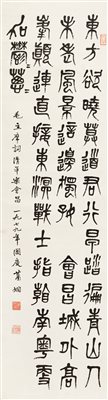 東方欲曉莫道君行早踏遍青山人
未老風景這邊獨好會昌城外高
峯顛連直接東溟戰士指看南粵更
加鬱〻蔥〻
毛主席詞清平樂會昌一九七九年國慶蕭嫻